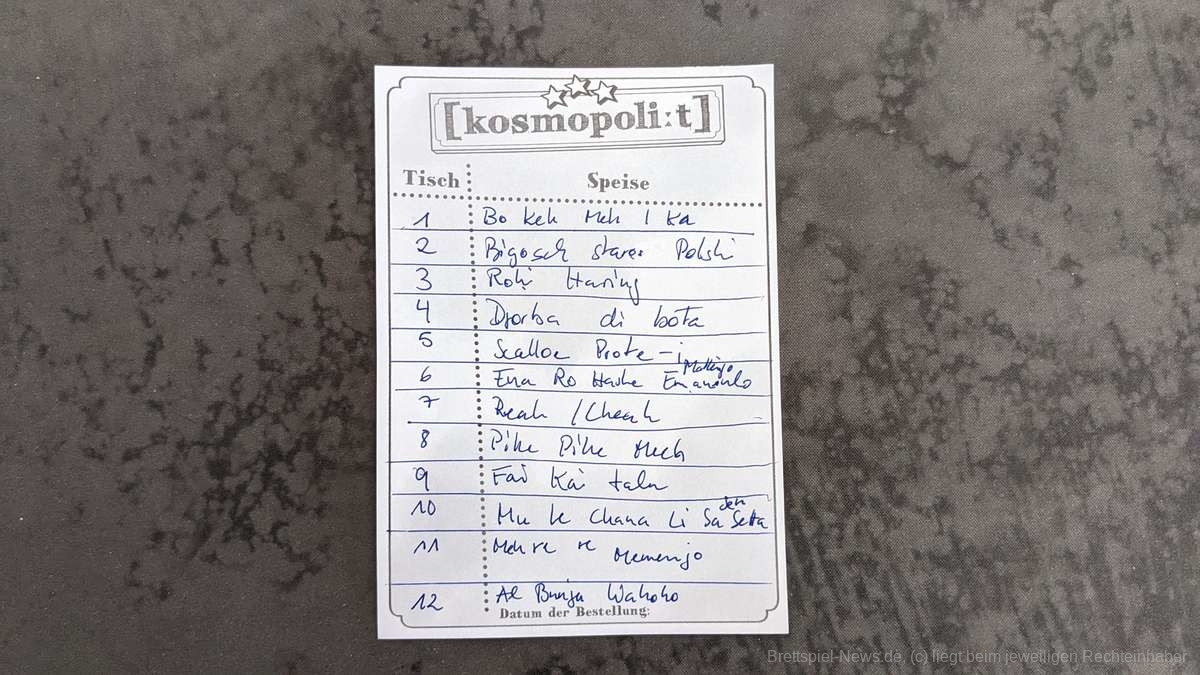 [kosmopoli:t]
Tisch Speise
1 Bo Keh Meh I Ka
2 Bigosch starei Polski
3 Roti Haring
4 Djorba di bota
5 Scalloe Prote-i
Mottinjo
6 Ena Ro Hache
7 Reah / Cheah
8 Pike Pike Meeh
9 Fai Kai talu
den
10 Mu le Chana Li Sa Setta
11 Meh re re Memenjo
12 Al Bunja Wahoho
Datum der Bestellung:
Brettspiel-News.de, (c) liegt beim jeweiligen Rechteinhaber